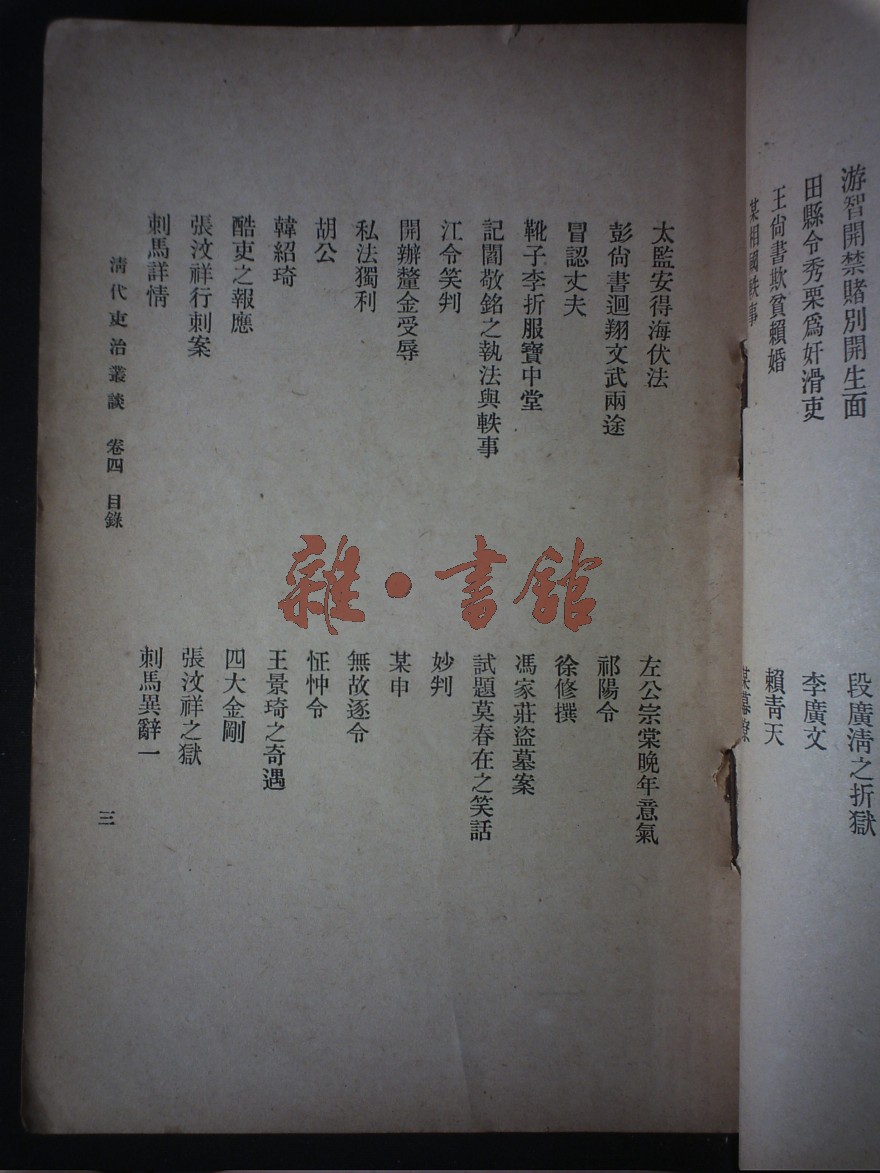 游智開禁賭別開生面
段廣清之折獄
田縣令秀栗爲奸滑吏
李廣文
王尙書欺貧賴婚
賴青天
某相國軼事
某幕僚
太監安得海伏法
左公宗棠晚年意氣
彭尙書迴翔文武兩途
祁陽令
冒認丈夫
徐修撰
靴子李折服寶中堂
馮家莊盜墓案
記閻敬銘之執法與軼事
試題莫春在之笑話
江令笑判
妙判
開辦釐金受辱
某申
私法獨利
無故逐令
胡公
怔忡令
韓紹琦
王景琦之奇遇
酷吏之報應
四大金剛
張汶祥行刺案
張汶祥之獄
刺馬詳情
刺馬異辭一
清代吏治叢談 卷四 目錄
三
雜·書館